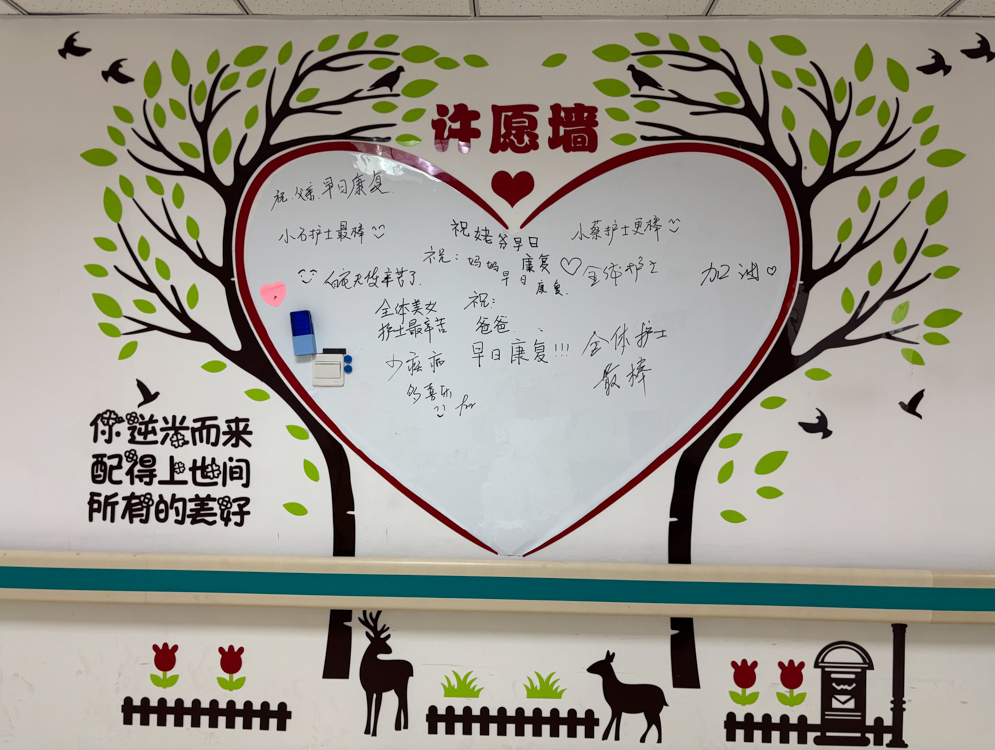 许愿墙
祝父亲早日康复
小石护士最棒
祝姥爷早日
康复
小蔡护士更棒
祝：妈妈
早日
康复
全体护士
加油
辛苦了
全体美女
护士最辛苦
祝：
爸爸
早日康复!!!
全体护士
最棒
少疾病
多喜乐
你逆光而来
配得上世间
所有的美好